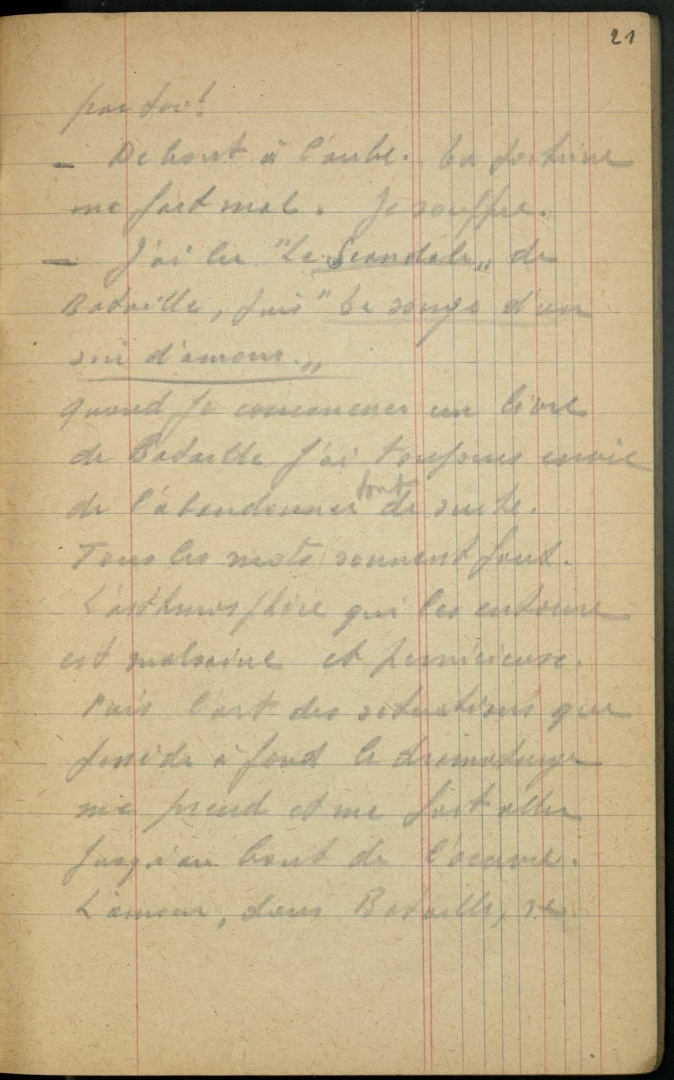 21
partout
— Debout à l'aube. La poitrine
me fait mal. Je souffre.
— J'ai lu "Le Scandale„ de
Bataille, puis "Le songe d'un
soir d'amour.„
quand je commence un livre
de Bataille j'ai toujours envie
de l'abandonner tout de suite.
Tous les mots sonnent faux.
L'asthmosphère qui les entoure
est malsaine et pernicieuse.
Puis l'art des situations que
possède à fond le dramaturge
me prend et me fait aller
jusqu'au bout de l'oeuvre.
L'amour, dans Bataille, se